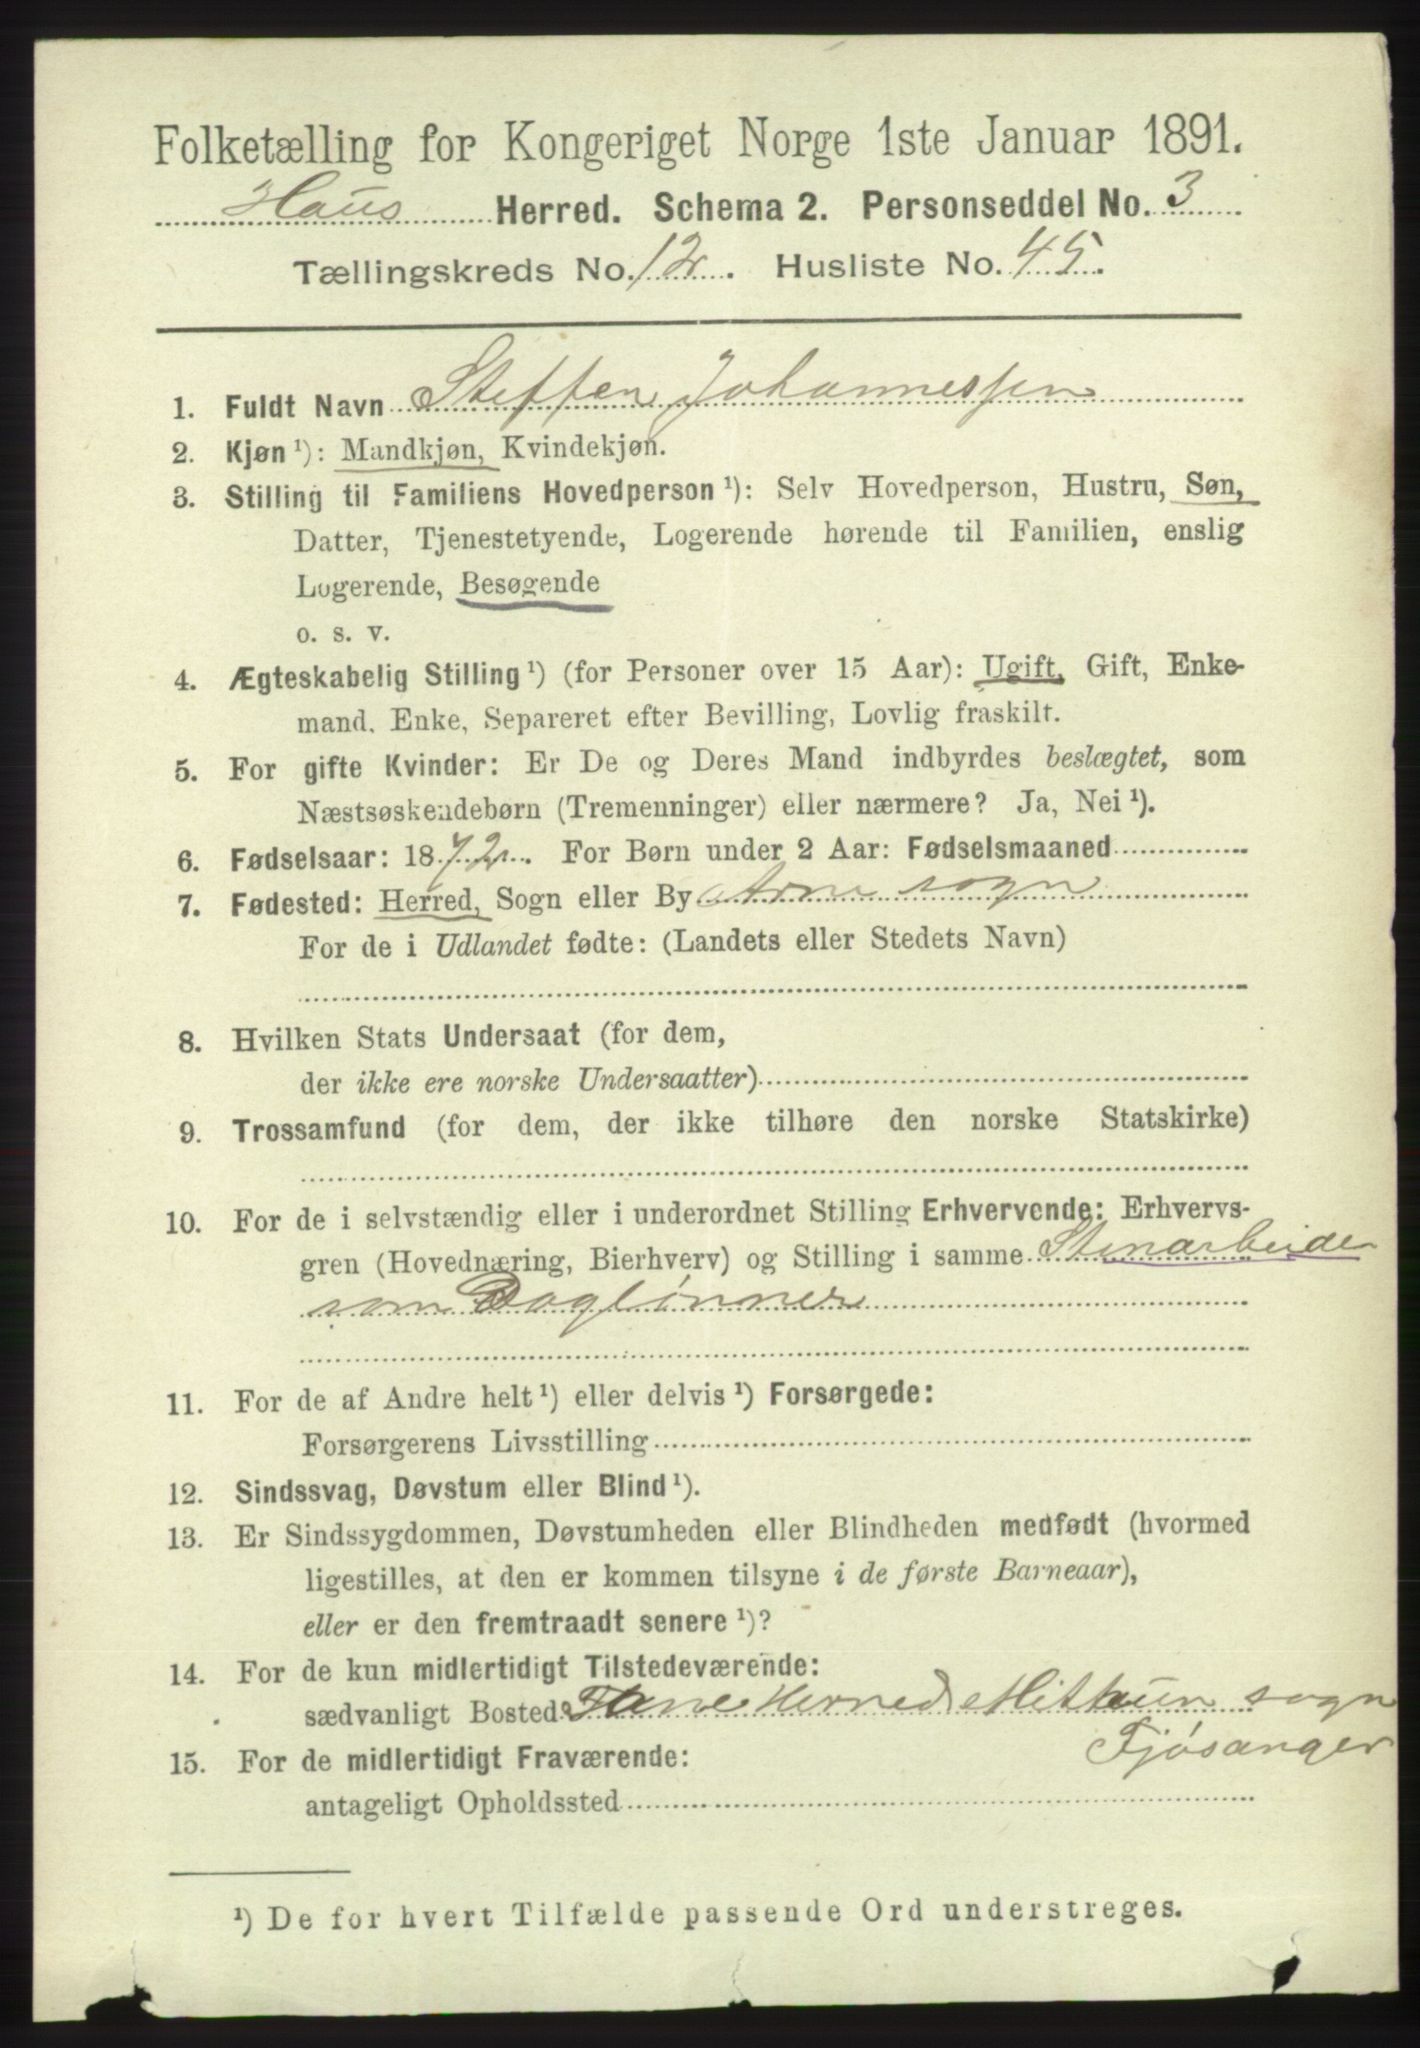 Folketælling for Kongeriget Norge 1ste Januar 1891.
Haus Herred. Schema 2. Personseddel No. 3
Tællingskreds No. 12. Husliste No. 45.
1. Fuldt Navn Steffen Johannessen
2. Kjøn ¹): Mandkjøn, Kvindekjøn.
3. Stilling til Familiens Hovedperson ¹): Selv Hovedperson, Hustru, Søn,
Datter, Tjenestetyende, Logerende hørende til Familien, enslig
Logerende, Besøgende
o. s. v.
4. Ægteskabelig Stilling ¹) (for Personer over 15 Aar): Ugift, Gift, Enke-
mand, Enke, Separeret efter Bevilling, Lovlig fraskilt.
5. For gifte Kvinder: Er De og Deres Mand indbyrdes beslægtet, som
Næstsøskendebørn (Tremenninger) eller nærmere? Ja, Nei ¹).
6. Fødselsaar: 1872. For Børn under 2 Aar: Fødselsmaaned
7. Fødested: Herred, Sogn eller By Arne sogn
For de i Udlandet fødte: (Landets eller Stedets Navn)
8. Hvilken Stats Undersaat (for dem,
der ikke ere norske Undersaatter)
9. Trossamfund (for dem, der ikke tilhøre den norske Statskirke)
10. For de i selvstændig eller i underordnet Stilling Erhvervende: Erhvervs-
gren (Hovednæring, Bierhverv) og Stilling i samme Stenarbeide
som Daglønner
11. For de af Andre helt ¹) eller delvis ¹) Forsørgede:
Forsørgerens Livsstilling
12. Sindssvag, Døvstum eller Blind ¹).
13. Er Sindssygdommen, Døvstumheden eller Blindheden medfødt (hvormed
ligestilles, at den er kommen tilsyne i de første Barneaar),
eller er den fremtraadt senere ¹)?
14. For de kun midlertidigt Tilstedeværende:
sædvanligt Bosted Fane Herred Mithun sogn
Fjøsanger
15. For de midlertidigt Fraværende:
antageligt Opholdssted
¹) De for hvert Tilfælde passende Ord understreges.